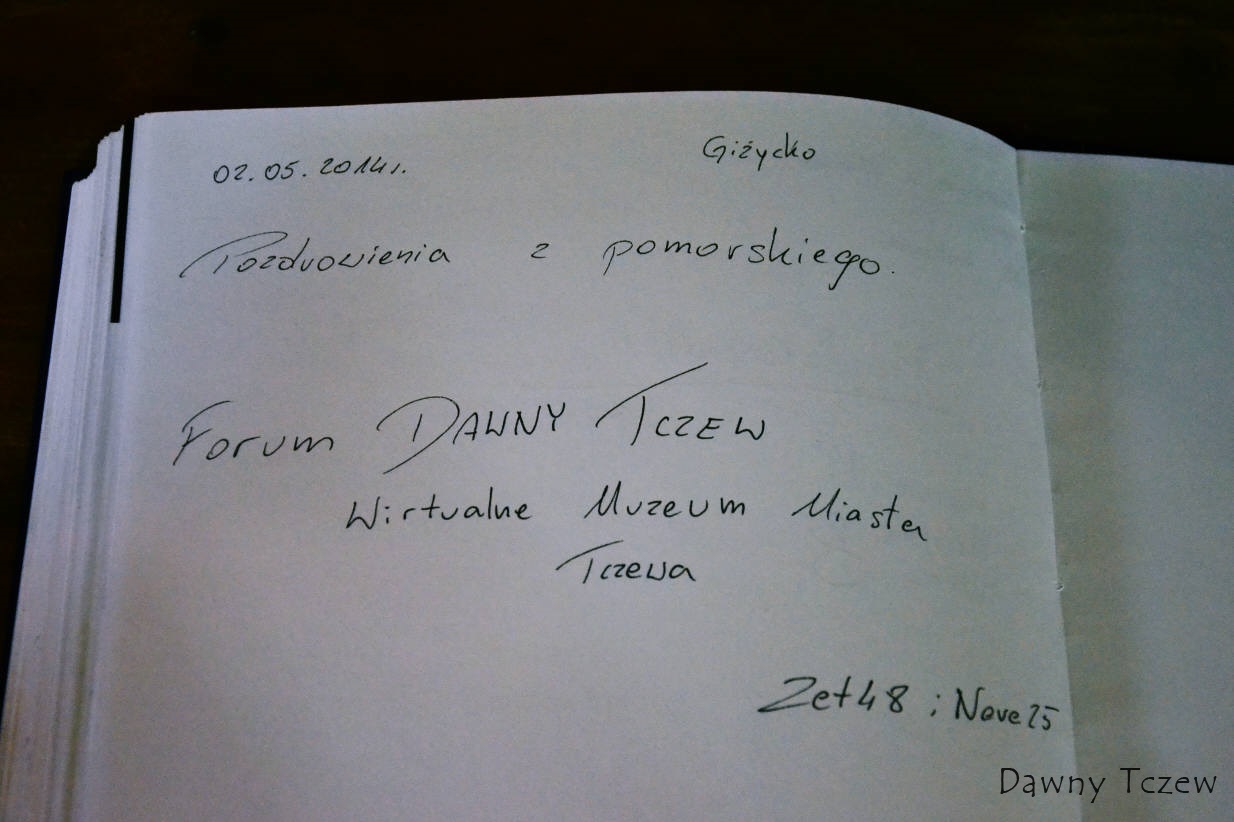 02.05.2014r. Giżycko
Pozdrowienia z pomorskiego.
Forum DAWNY TCZEW
Wirtualne Muzeum Miasta
Tczewa
Zet48 i Nove25
Dawny Tczew